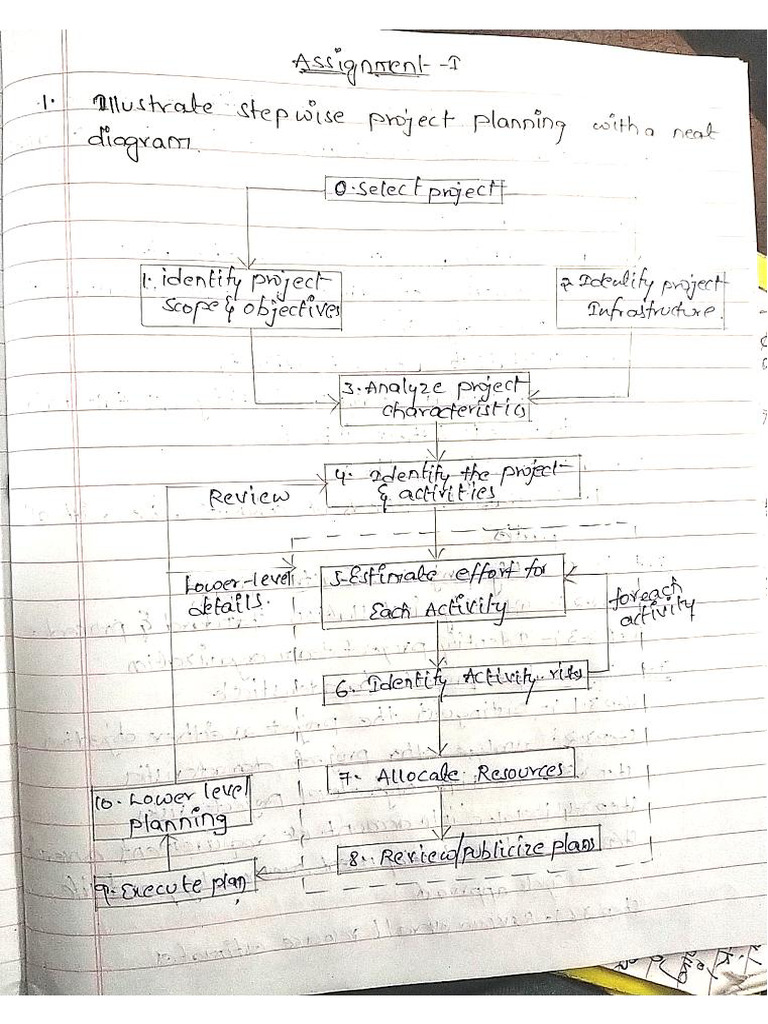 Assignment - I
1. Illustrate stepwise project planning with a neat
diagram.
0. Select project
1. identify project
scope & objectives
2. Identify project
Infrastructure.
3. Analyze project
characteristics
4. Identify the project
& activities
Review
Lower-level
details.
5. Estimate effort for
Each Activity
foreach
activity
6. Identify Activity risks
7. Allocate Resources
10. Lower level
planning
8. Review/publicize plans
9. Execute plan